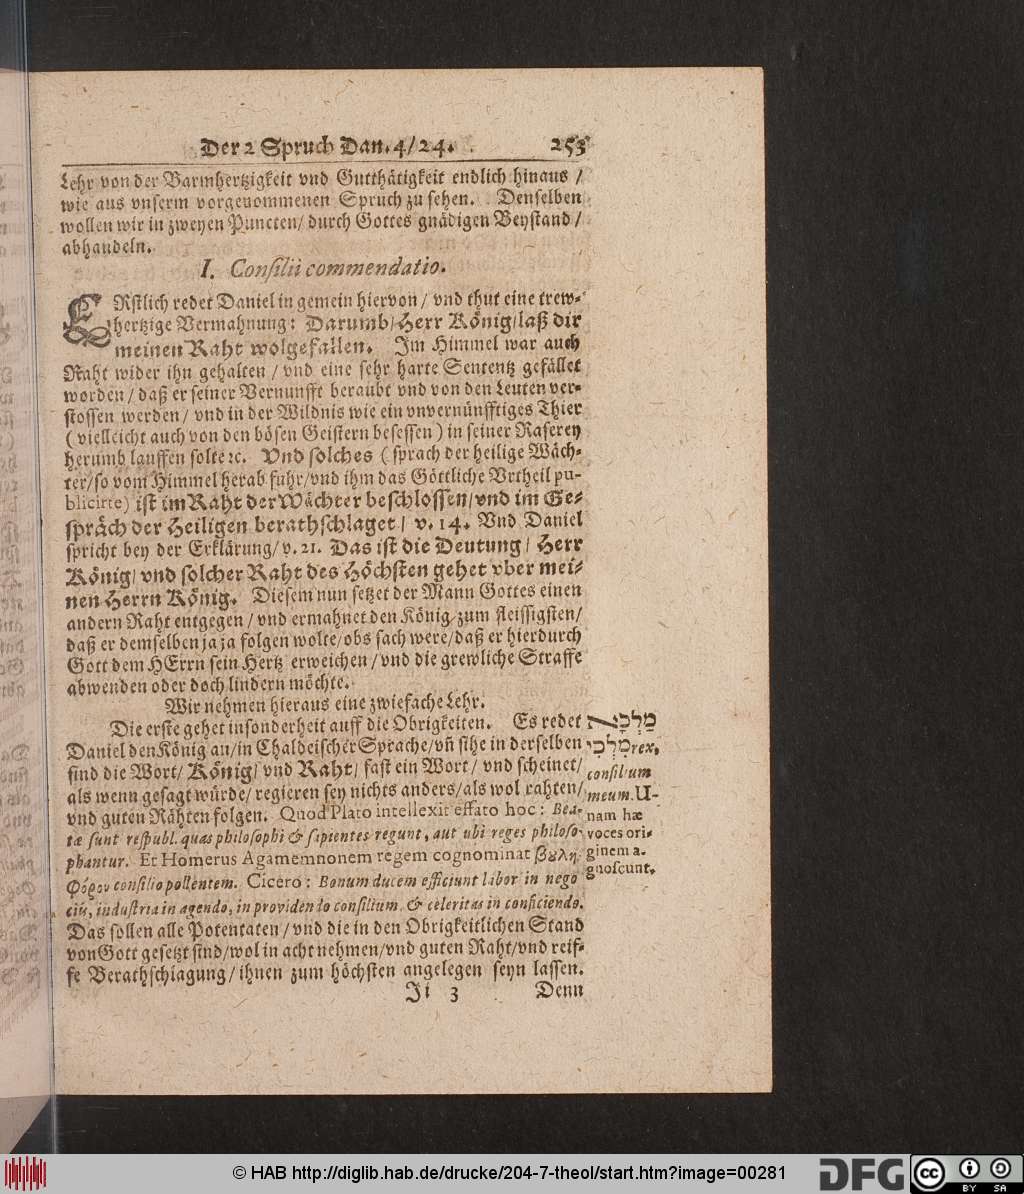 Der 2 Spruch Dan. 4/24. 253
Lehr von der Barmhertzigkeit vnd Gutthätigkeit endlich hinaus /
wie aus vnserm vorgenommenen Spruch zu sehen. Denselben
wollen wir in zweyen Puncten/ durch Gottes gnädigen Beystand /
abhandeln.
I. Consilii commendatio.
ERstlich redet Daniel in gemein hiervon / vnd thut eine trew-
hertzige Vermahnung: Darumb/Herr König/laß dir
meinen Raht wolgefallen. Im Himmel war auch
Raht wider ihn gehalten / vnd eine sehr harte Sententz gefället
worden / daß er seiner Vernunfft beraubt vnd von den Leuten ver-
stossen werden / vnd in der Wildnis wie ein vnvernünfftiges Thier
( vielleicht auch von den bösen Geistern besessen ) in seiner Raserey
herumb lauffen solte ꝛc. Vnd solches ( sprach der heilige Wäch-
ter/so vom Himmel herab fuhr/vnd ihm das Göttliche Vrtheil pu-
blicirte) ist im Raht der Wächter beschlossen/vnd im Ge-
spräch der Heiligen berathschlaget / v. 14. Vnd Daniel
spricht bey der Erklärung/ v. 21. Das ist die Deutung / Herr
König/ vnd solcher Raht des Höchsten gehet vber mei-
nen Herrn König. Diesem nun setzet der Mann Gottes einen
andern Raht entgegen / vnd ermahnet den König zum fleissigsten/
daß er demselben ja ja folgen wolte/obs sach were/daß er hierdurch
Gott dem HErrn sein Hertz erweichen / vnd die grewliche Straffe
abwenden oder doch lindern möchte.
Wir nehmen hieraus eine zwiefache Lehr.
Die erste gehet insonderheit auff die Obrigkeiten. Es redet
Daniel den König an/in Chaldeischer Sprache/vñ sihe in derselben
sind die Wort/ König/ vnd Raht/ fast ein Wort / vnd scheinet/
als wenn gesagt würde/ regieren sey nichts anders/als wol rahten/
vnd guten Rähten folgen. Quod Plato intellexit effato hoc: Bea-
tæ sunt respubl. quas philosophi & sapientes regunt, aut ubi reges philoso-
phantur. Et Homerus Agamemnonem regem cognominat βουλη
φόρον consilio pollentem. Cicero: Bonum ducem efficiunt labor in nego
ciis, industria in agendo, in providendo consilium & celeritas in conficiendo.
Das sollen alle Potentaten / vnd die in den Obrigkeitlichen Stand
von Gott gesetzt sind/wol in acht nehmen/vnd guten Raht/vnd reif-
fe Berathschlagung / ihnen zum höchsten angelegen seyn lassen.
Ii 3 Denn
מַלְכָּא
מִלְכִּי rex,
consilium
meum. U-
nam hæ
voces ori-
ginem a-
gnoscunt.
© HAB http://diglib.hab.de/drucke/204-7-theol/start.htm?image=00281
DFG
cc BY SA